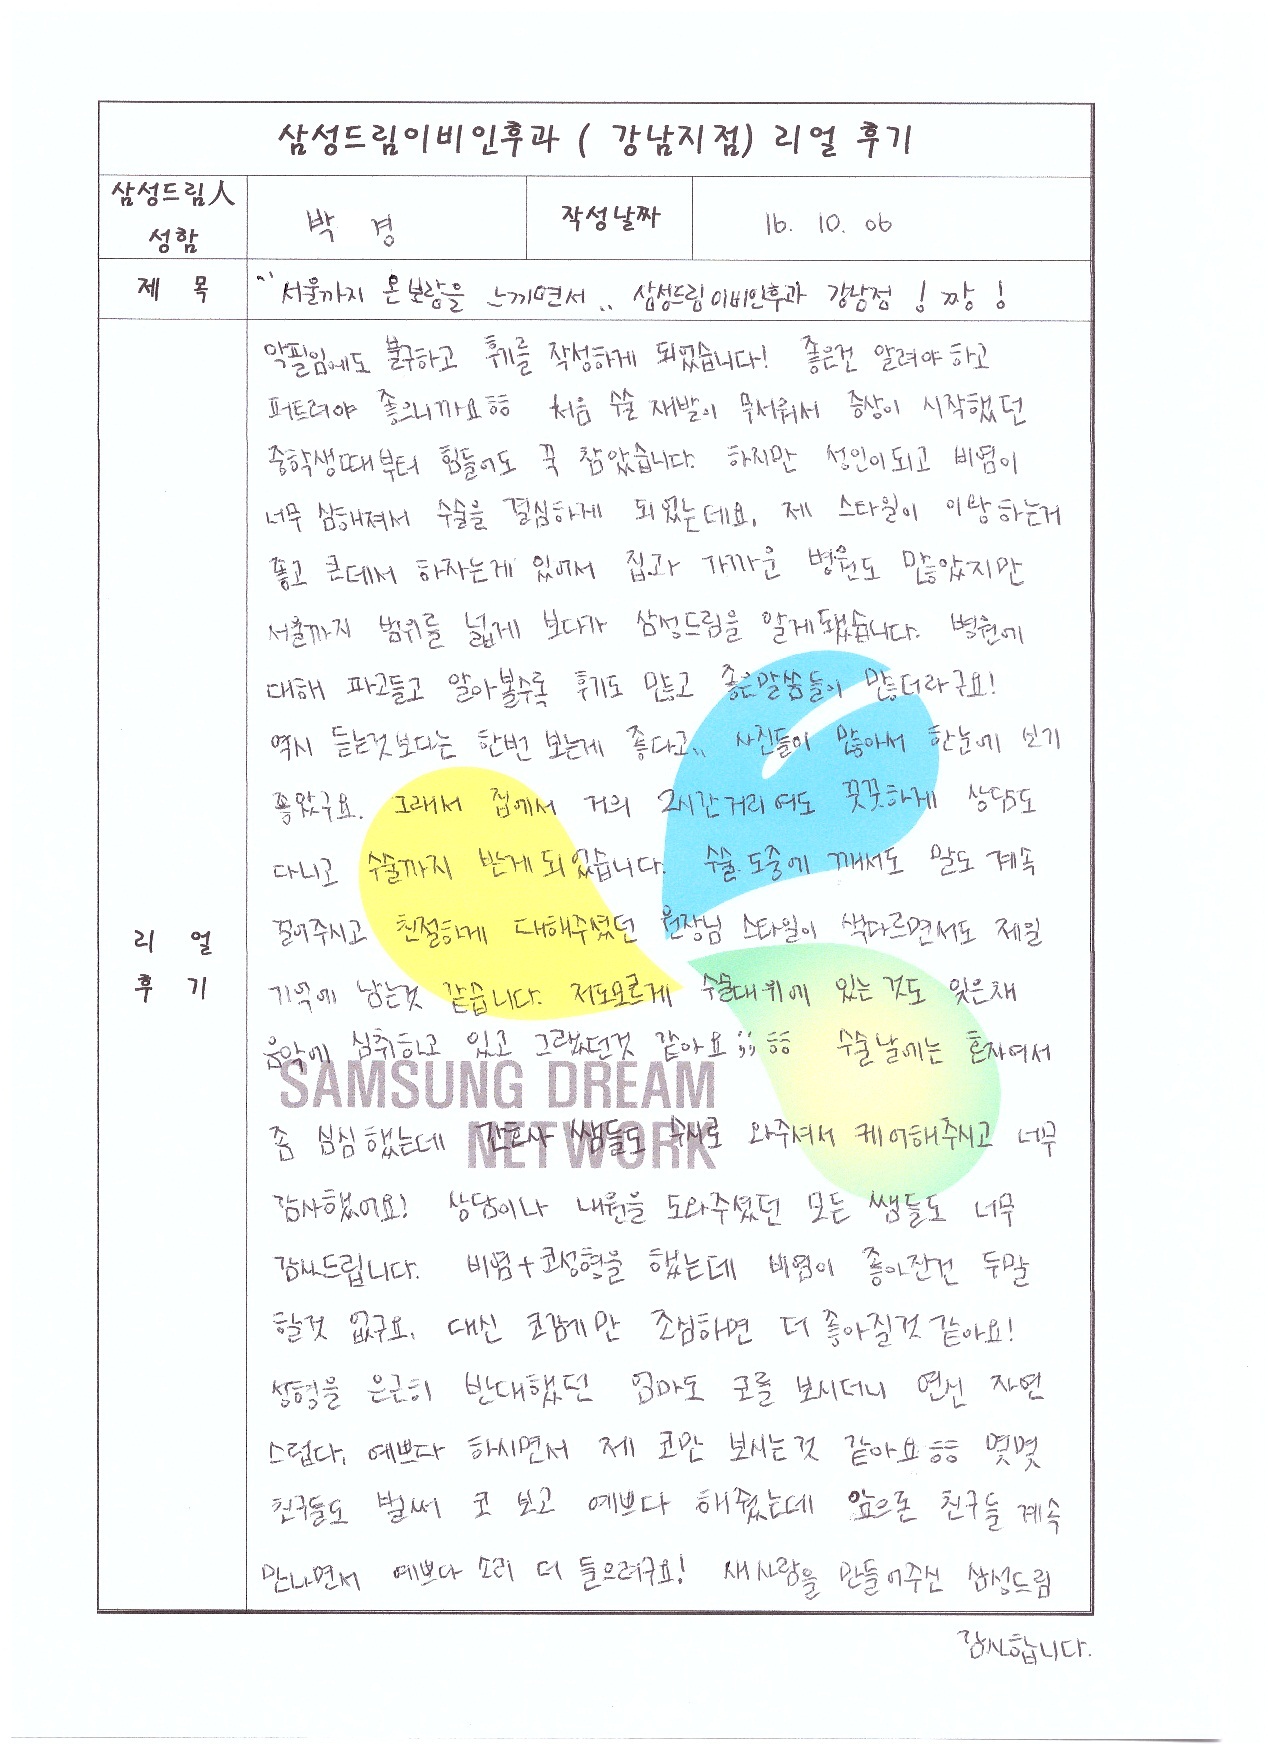 삼성드림이비인후과 ( 강남지점) 리얼 후기
삼성드림人 성함
박 경
작성날짜
16. 10. 06
제 목
"서울까지 온 보람을 느끼면서.. 삼성드림이비인후과 강남점 ! 짱 !
리 얼
후 기
악필임에도 불구하고 후기를 작성하게 되었습니다! 좋은건 알려야 하고
퍼트려야 좋으니까요ㅎㅎ 처음 수술 재발이 무서워서 증상이 시작했던
중학생때부터 힘들어도 꾹 참았습니다. 하지만 성인이되고 비염이
너무 심해져서 수술을 결심하게 되었는데요, 제 스타일이 이왕 하는거
좋고 큰데서 하자는게 있어서 집과 가까운 병원도 많았지만
서울까지 범위를 넓게 보다가 삼성드림을 알게됐습니다. 병원에
대해 파고들고 알아볼수록 후기도 많고 좋은말씀들이 많더라구요!
역시 듣는것보다는 한번 보는게 좋다고.. 사진들이 많아서 한눈에 보기
좋았구요. 그래서 집에서 거의 2시간거리여도 꿋꿋하게 상담도
다니고 수술까지 받게되었습니다. 수술 도중에 깨서도 말도 계속
걸어주시고 친절하게 대해주셨던 원장님 스타일이 색다르면서도 제일
기억에 남는것 같습니다. 저도모르게 수술대위에 있는 것도 잊은채
음악에 심취하고 있고 그랬던것 같아요;;ㅎㅎ 수술날에는 혼자여서
SAMSUNG DREAM
NETWORK
좀 심심했는데 간호사 쌤들도 수시로 와주셔서 케어해주시고 너무
감사했어요! 상담이나 내원을 도와주셨던 모든 쌤들도 너무
감사드립니다. 비염+코성형을 했는데 비염이 좋아진건 두말
할것 없구요, 대신 코감기만 조심하면 더 좋아질것 같아요!
성형을 은근히 반대했던 엄마도 코를 보시더니 연신 자연
스럽다, 예쁘다 하시면서 제 코만 보시는것 같아요ㅎㅎ 몇몇
친구들도 벌써 코 보고 예쁘다 해줬는데 앞으론 친구들 계속
만나면서 예쁘다 소리 더 들으려구요! 새사람을 만들어주신 삼성드림
감사합니다.